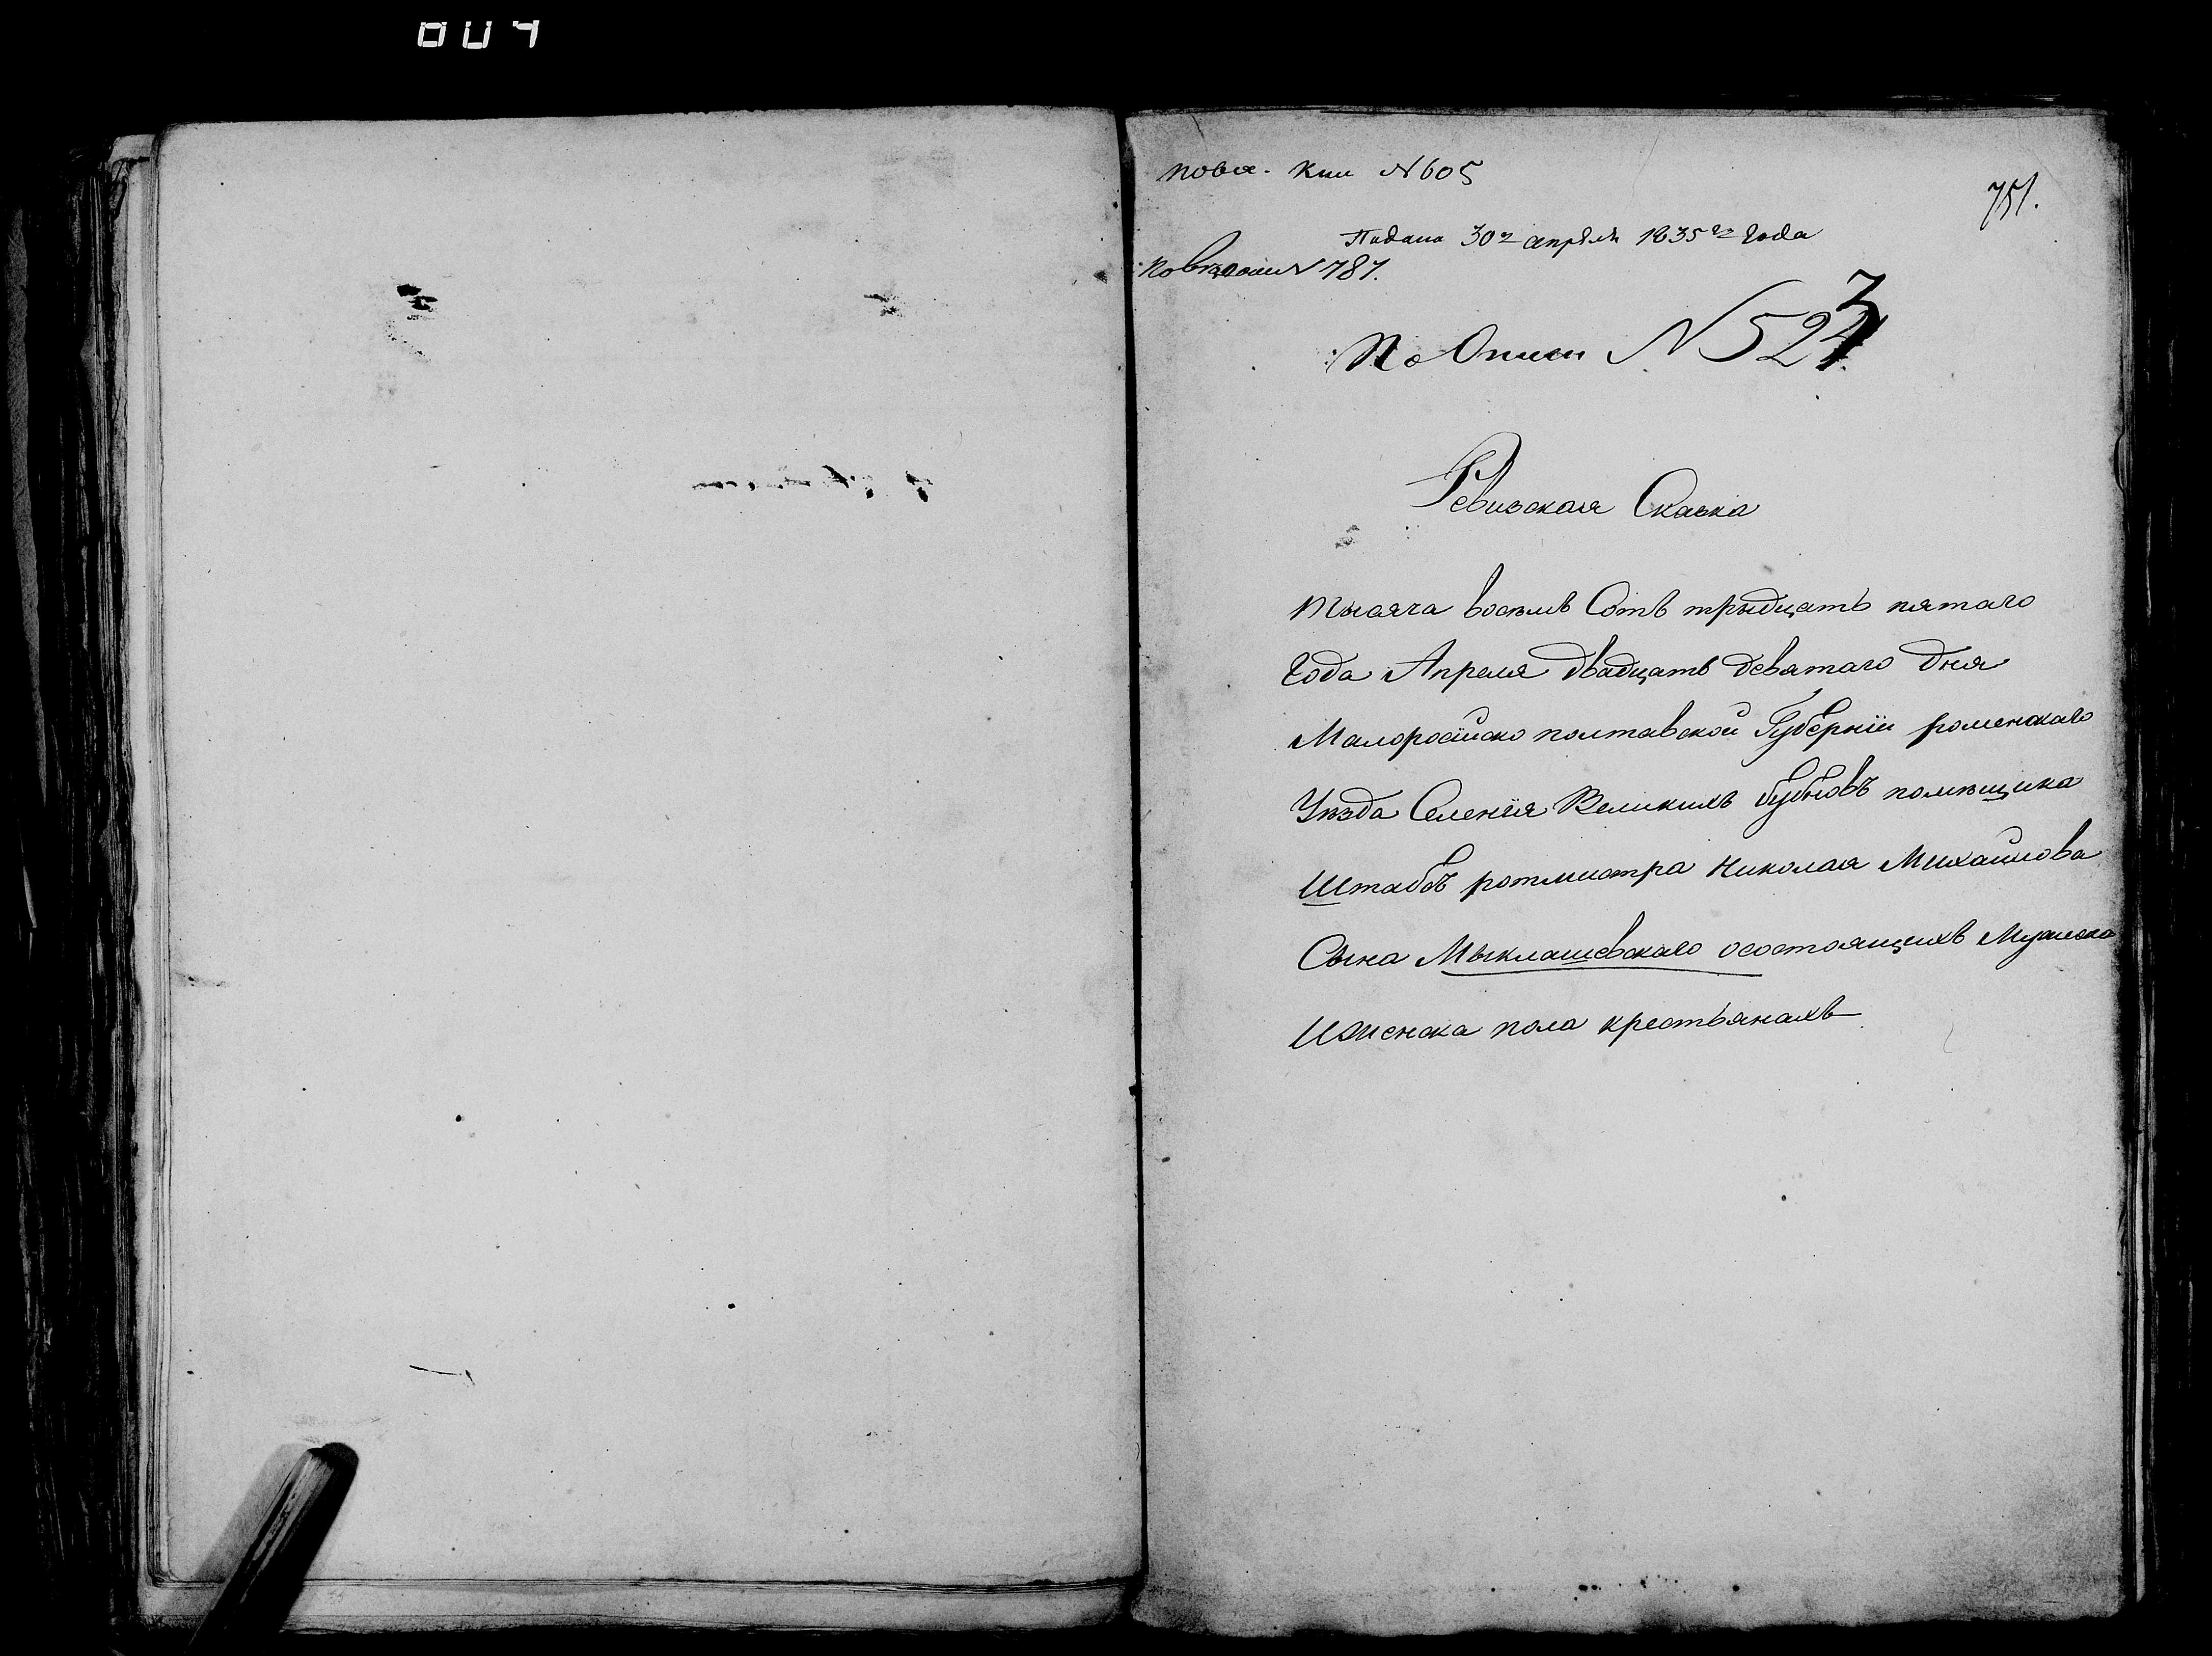 004
751.
Повел. Кни N 605
Подана 30го апреля 1835го года
N 787.
По Описи N 523
Ревизская Сказка
тысяча восемь Сотъ трыдцать пятаго
Года Апреля двадцать девятаго дня
Малоросійско полтавской Губерніи роменскаго
Уезда Селенія Великихъ бубновъ помещика
Штабъ ротмистра Николая Михайлова
Сына Мыклашевскаго осостоящихъ Мужеска
Иженска пола крестьянахъ